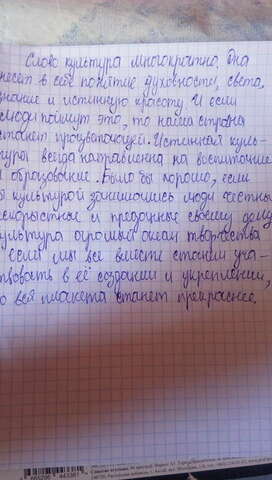 Слово культура многократно. Она
несет в себе понятие духовности, света,
знание и истинную красоту. И если
люди поймут это, то наша страна
станет процветающей. Истинная куль-
тура всегда направлена на воспитание
и образование. Было бы хорошо, если
культурой занимались люди честные
бескорыстные и преданные своему делу
культура огромный океан творчества
если мы все вместе станем уча-
ствовать в её создании и укреплении,
то вся планета станет прекраснее.